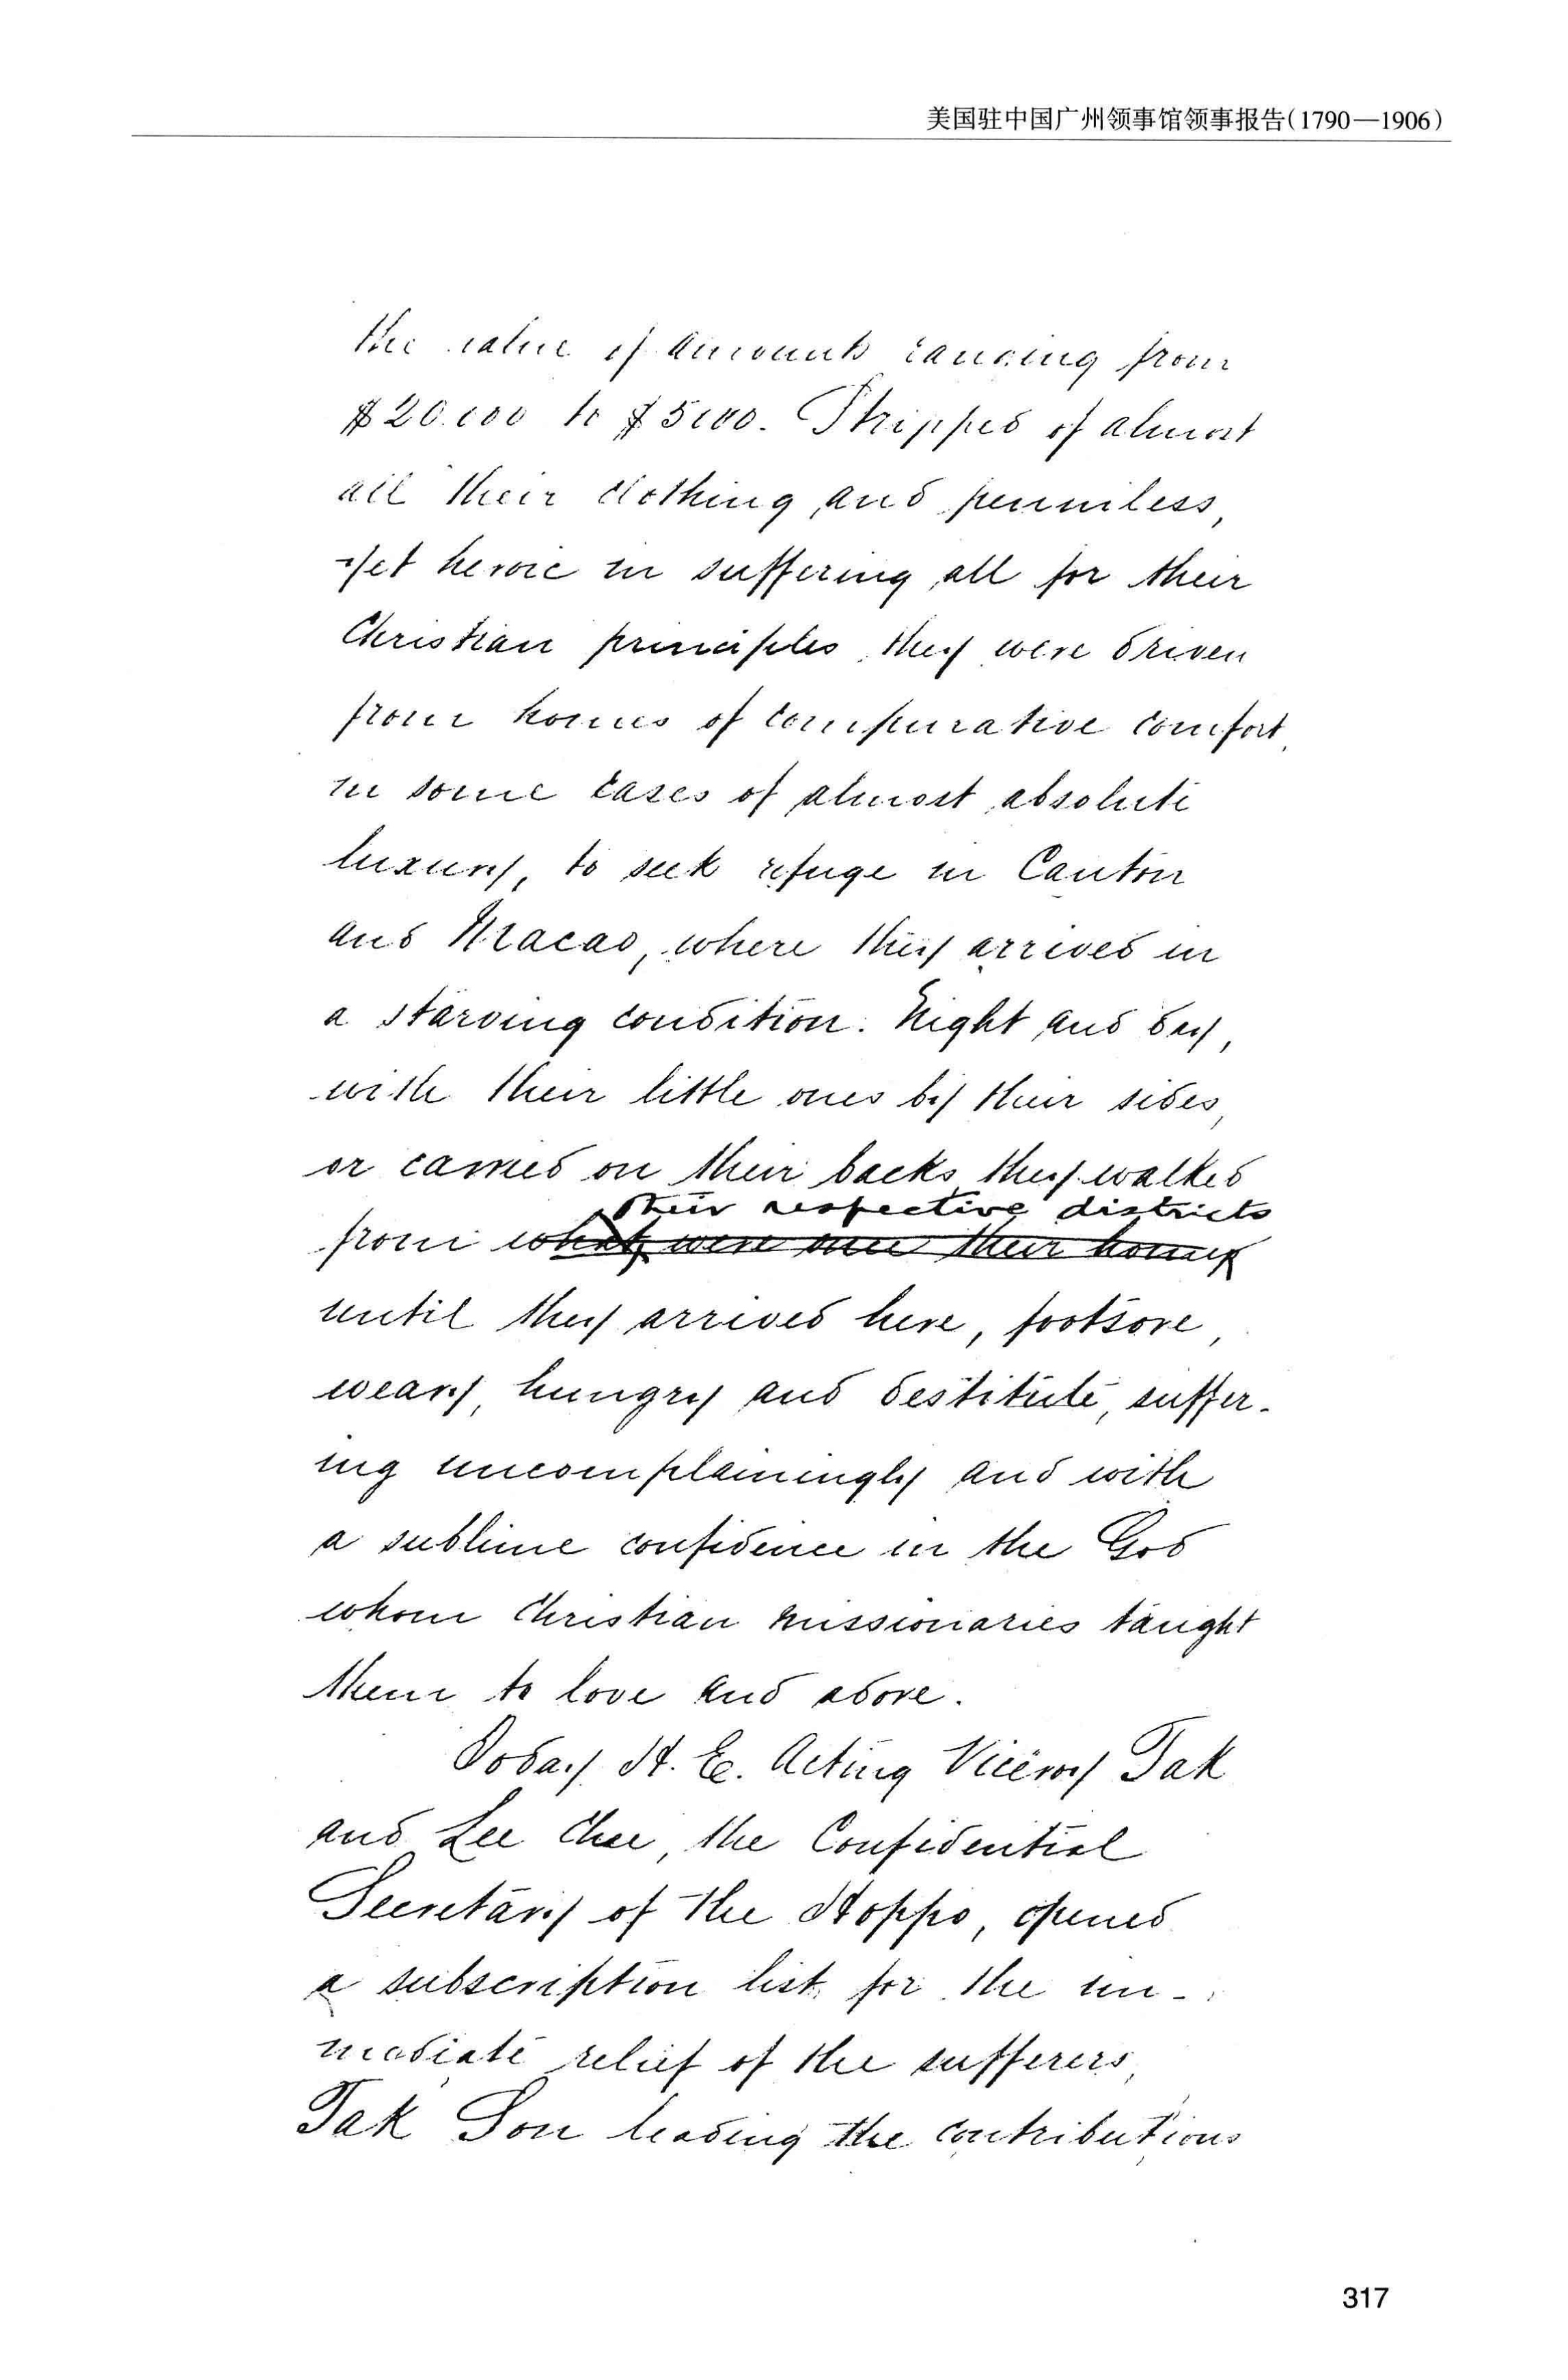 美国驻中国广州领事馆领事报告(1790—1906)
the value of amounts ranging from
$20.000 to $5000. Stripped of almost
all their clothing and penniless,
yet heroic in suffering all for their
Christian principles, they were driven
from homes of comparative comfort,
in some cases of almost absolute
luxury, to seek refuge in Canton
and Macao, where they arrived in
a starving condition. Night and day,
with their little ones by their sides,
or carried on their backs, they walked
their respective districts
from what were once their homes
until they arrived here, footsore,
weary, hungry and destitute, suffer-
ing uncomplainingly and with
a sublime confidence in the God
whom Christian missionaries taught
them to love and adore.
Today H. E. Acting Viceroy Tak
and Lee Chee, the Confidential
Secretary of the Hoppo, opened
a subscription list for the im-
mediate relief of the sufferers,
Tak Son leading the contributions
317